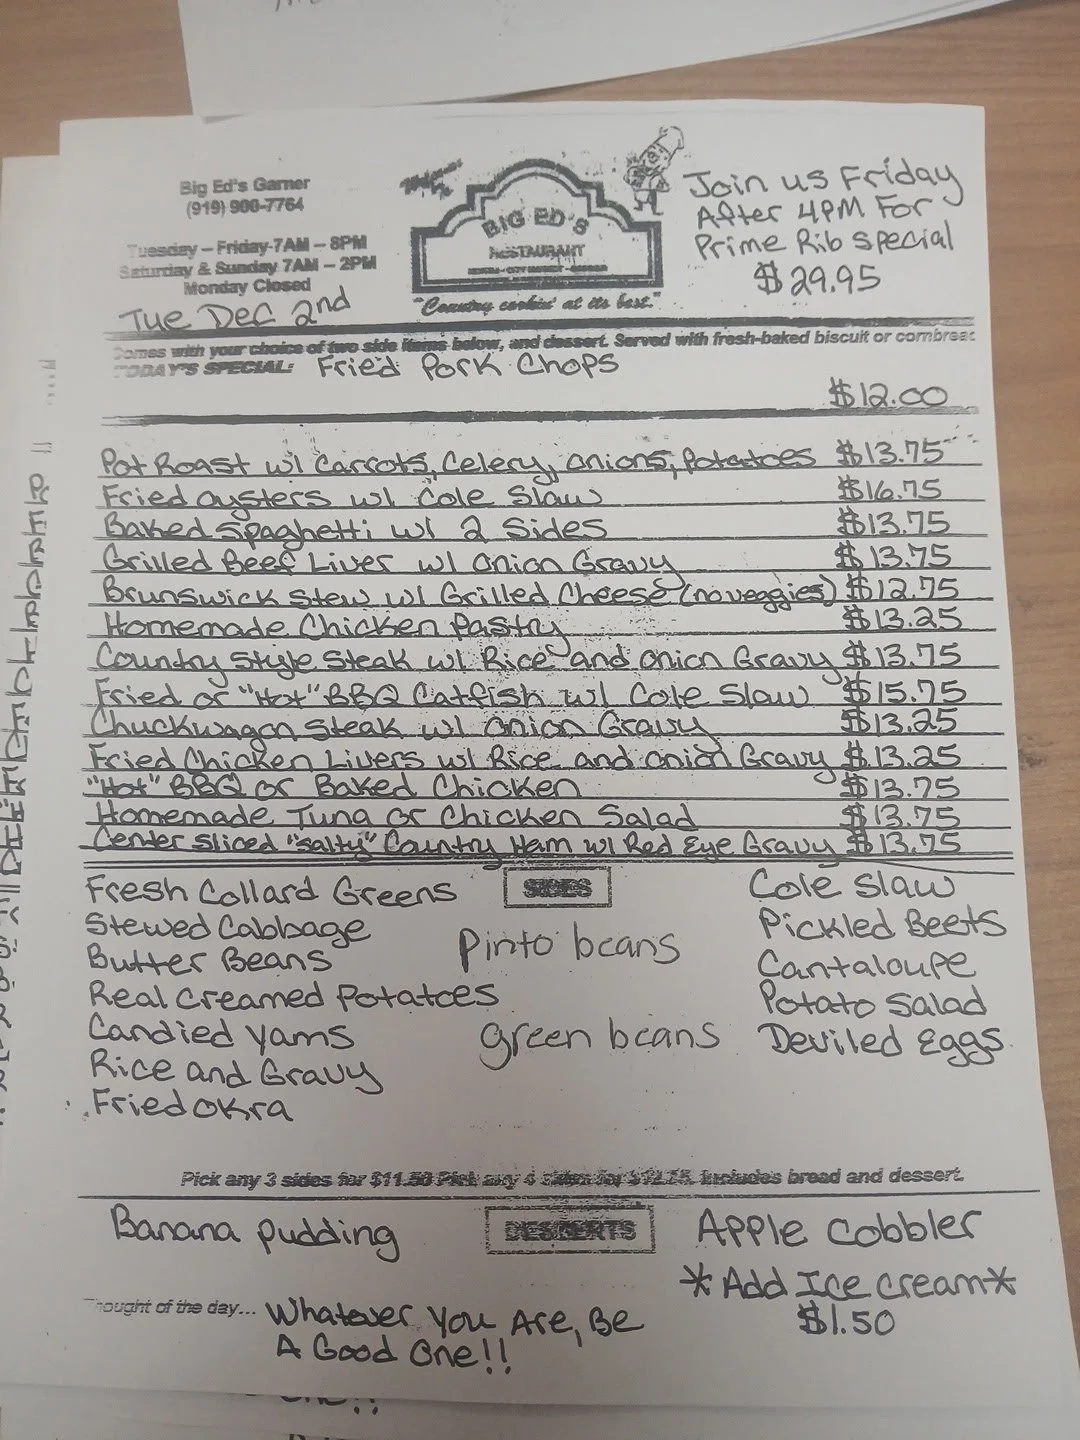 Big Ed's Garner
(919) 900-7764
Tuesday – Friday-7AM – 8PM
Saturday & Sunday 7AM – 2PM
Monday Closed
Tue Dec 2nd
BIG ED'S
RESTAURANT
"Country cookin' at its best."
Join us Friday
After 4PM For
Prime Rib Special
$29.95
Comes with your choice of two side items below, and dessert. Served with fresh-baked biscuit or cornbread
TODAY'S SPECIAL: Fried Pork Chops
$12.00
Pot Roast w/ Carrots, Celery, Onions, Potatoes $13.75
Fried Oysters w/ Cole Slaw $16.75
Baked Spaghetti w/ 2 Sides $13.75
Grilled Beef Liver w/ Onion Gravy $13.75
Brunswick Stew w/ Grilled Cheese (no veggies) $12.75
Homemade Chicken Pastry $13.25
Country Style Steak w/ Rice and Onion Gravy $13.75
Fried or "Hot" BBQ Catfish w/ Cole Slaw $15.75
Chuckwagon Steak w/ Onion Gravy $13.25
Fried Chicken Livers w/ Rice and Onion Gravy $13.25
"Hot" BBQ or Baked Chicken $13.75
Homemade Tuna or Chicken Salad $13.75
Center Sliced "Salty" Country Ham w/ Red Eye Gravy $13.75
SIDES
Fresh Collard Greens
Stewed Cabbage
Butter Beans
Real Creamed Potatoes
Candied Yams
Rice and Gravy
Fried Okra
Pinto beans
green beans
Cole Slaw
Pickled Beets
Cantaloupe
Potato Salad
Deviled Eggs
Pick any 3 sides for $11.50 Pick any 4 sides for Includes bread and dessert.
DESSERTS
Banana Pudding
Apple Cobbler
*Add Ice Cream*
$1.50
Thought of the day... Whatever You Are, Be
A Good One!!